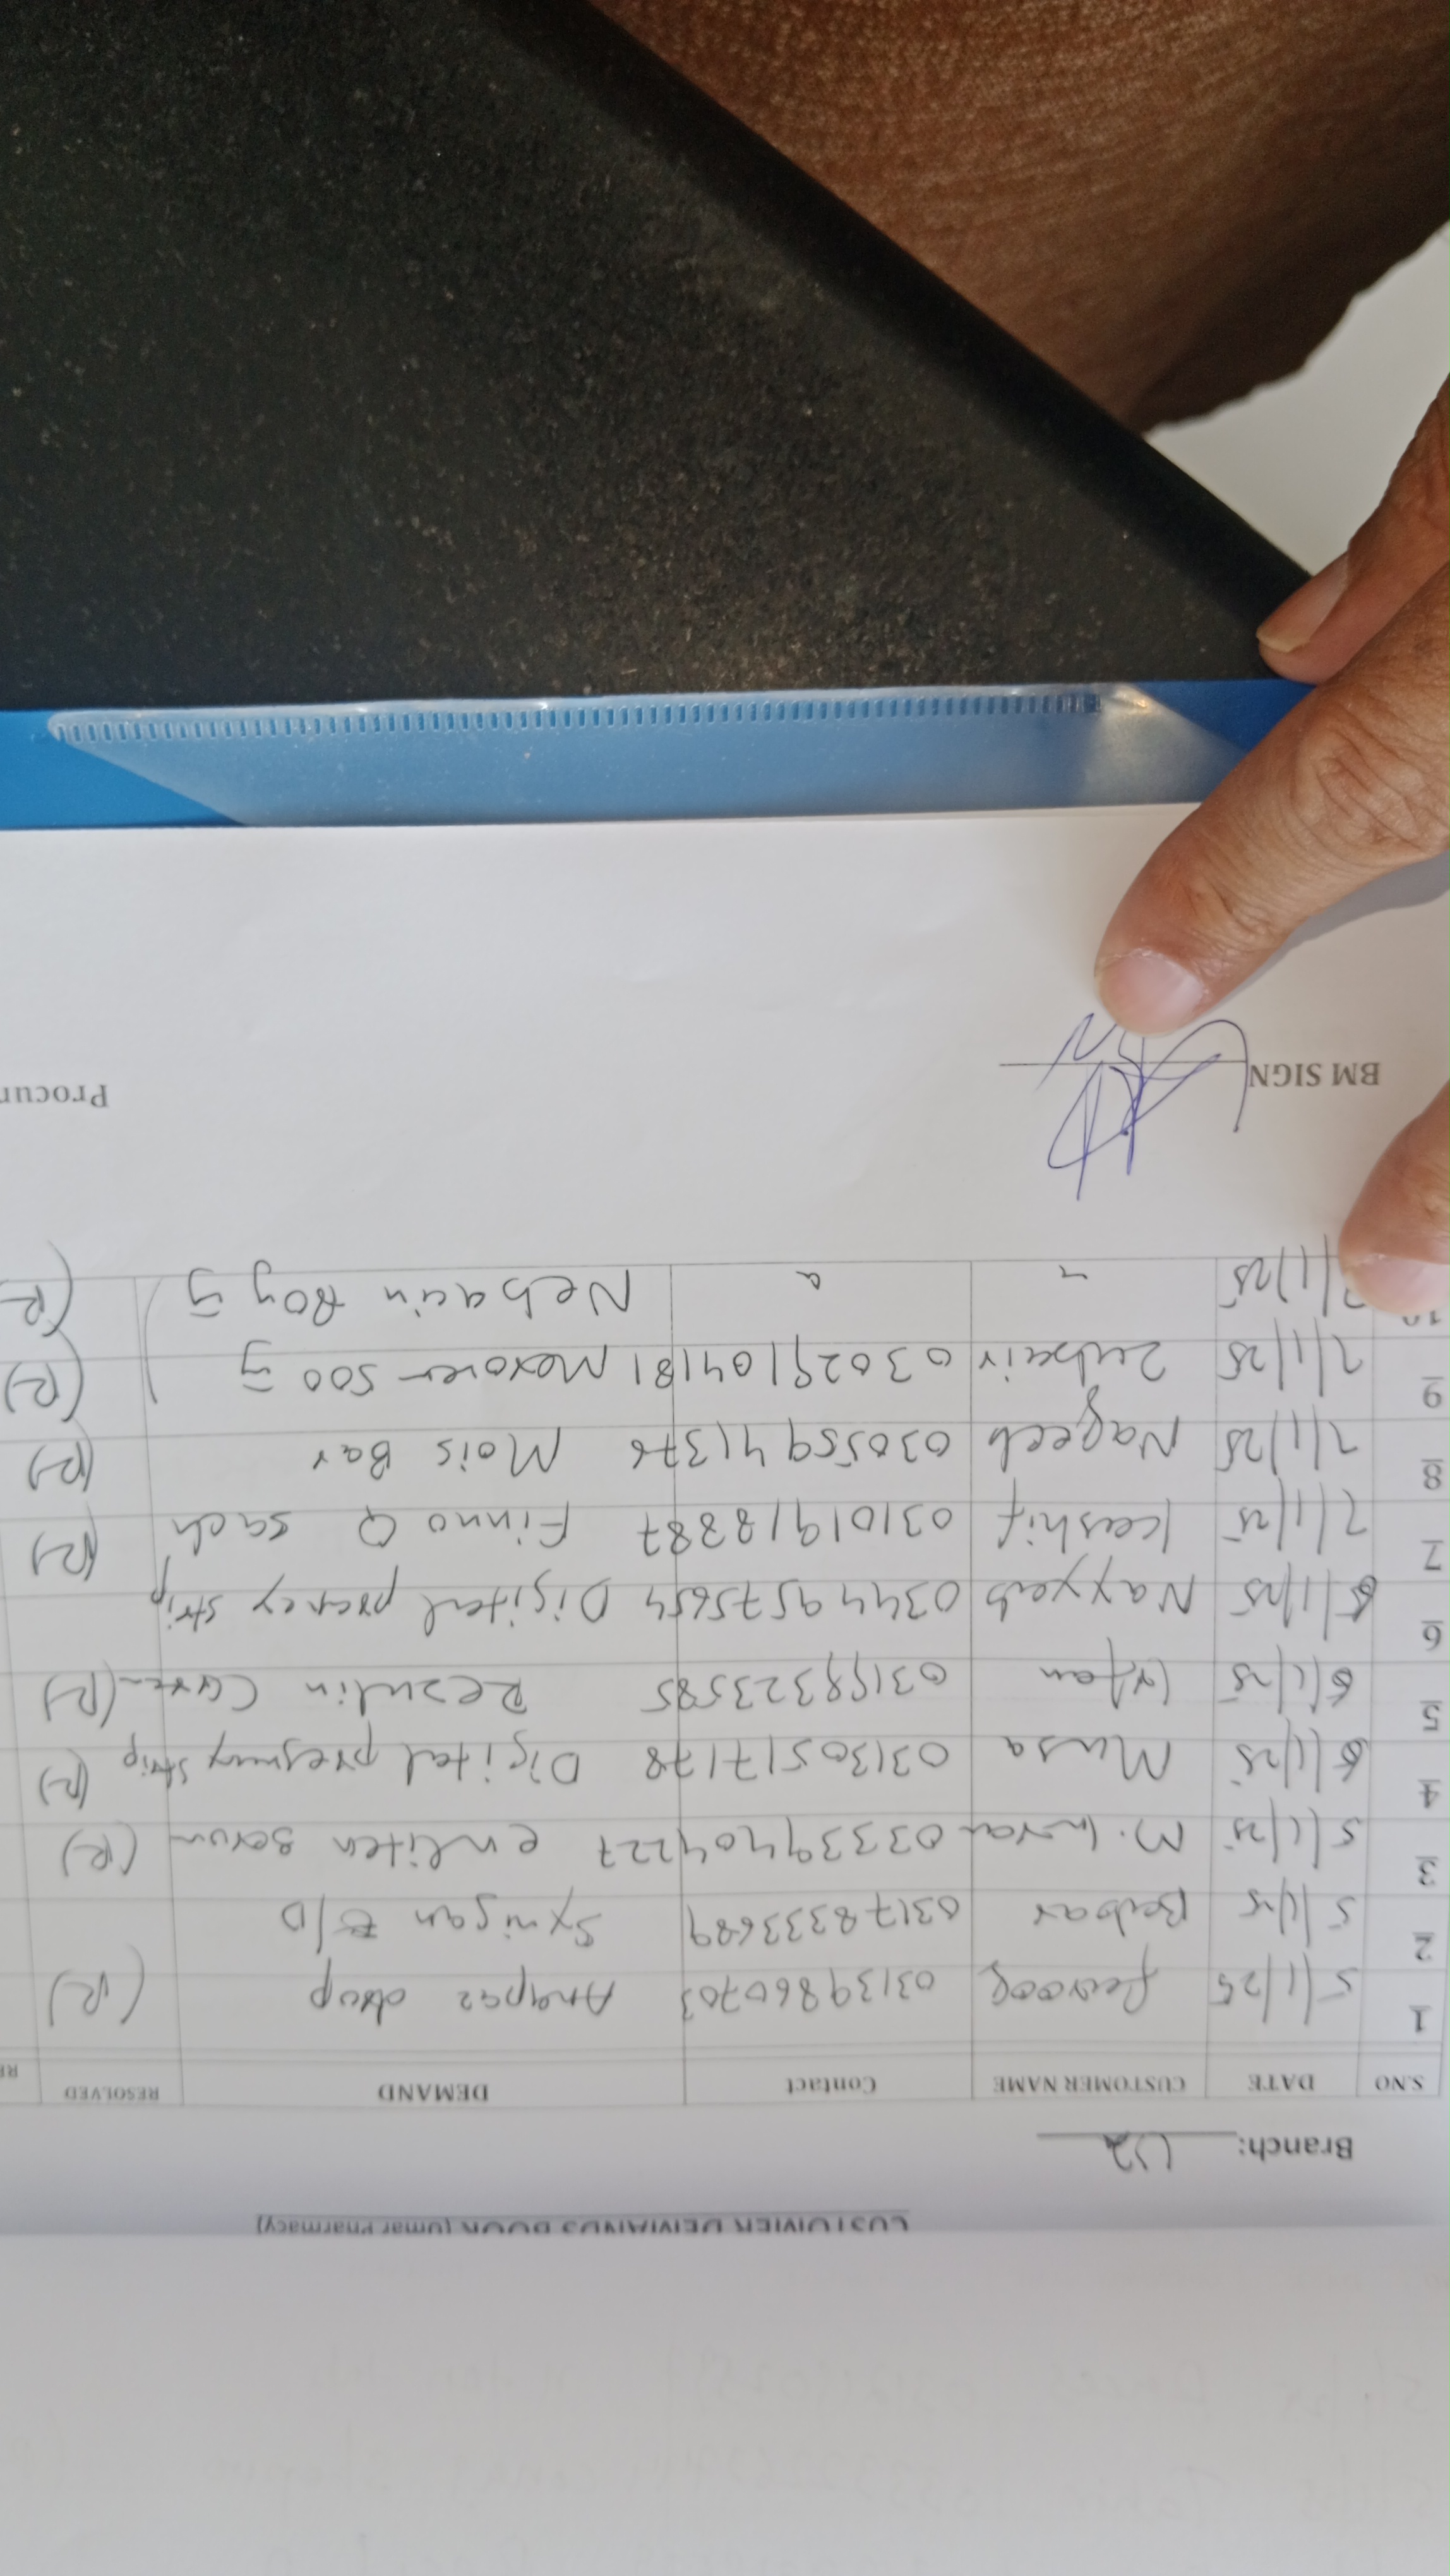 CUSTOMER DEMANDS BOOK (Umar Pharmacy)
Branch: U2
S.NO DATE CUSTOMER NAME Contact DEMAND RESOLVED RE
1 5/1/25 farooq 03139860703 Anapaz drop (R)
2 5/1/25 Babar 03178333689 Synigan E/D
3 5/1/25 M. Imran 03339404227 enliten serum (R)
4 6/1/25 Musa 03130517178 Digital pregnancy strip (R)
5 6/1/25 Irfan 03189323585 Rezulin (R)
6 6/1/25 Nayyab 03449575654 Digital strip
7 7/1/25 Kashif 03101918387 Finno Q sach (R)
8 7/1/25 Naqeeb 03055941376 Mois Bar (R)
9 7/1/25 Zubair 03029104181 Merover 500 g (R)
10 7/1/25 Nebacin 80g (R
BM SIGN Procur